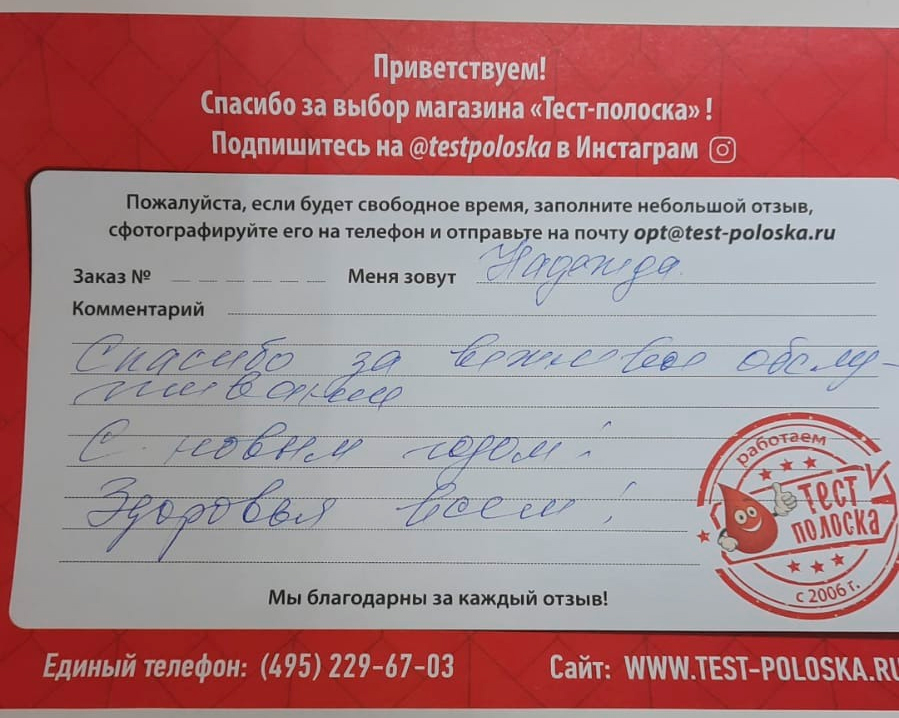 Приветствуем!
Спасибо за выбор магазина «Тест-полоска» !
Подпишитесь на @testpoloska в Инстаграм
Пожалуйста, если будет свободное время, заполните небольшой отзыв,
сфотографируйте его на телефон и отправьте на почту opt@test-poloska.ru
Заказ № Меня зовут Надежда.
Комментарий
Спасибо за вежливое обслу-
живание
С новым годом!
Здоровья всем!
работаем
ТЕСТ
ПОЛОСКА
с 2006 г.
Мы благодарны за каждый отзыв!
Единый телефон: (495) 229-67-03 Сайт: WWW.TEST-POLOSKA.RU